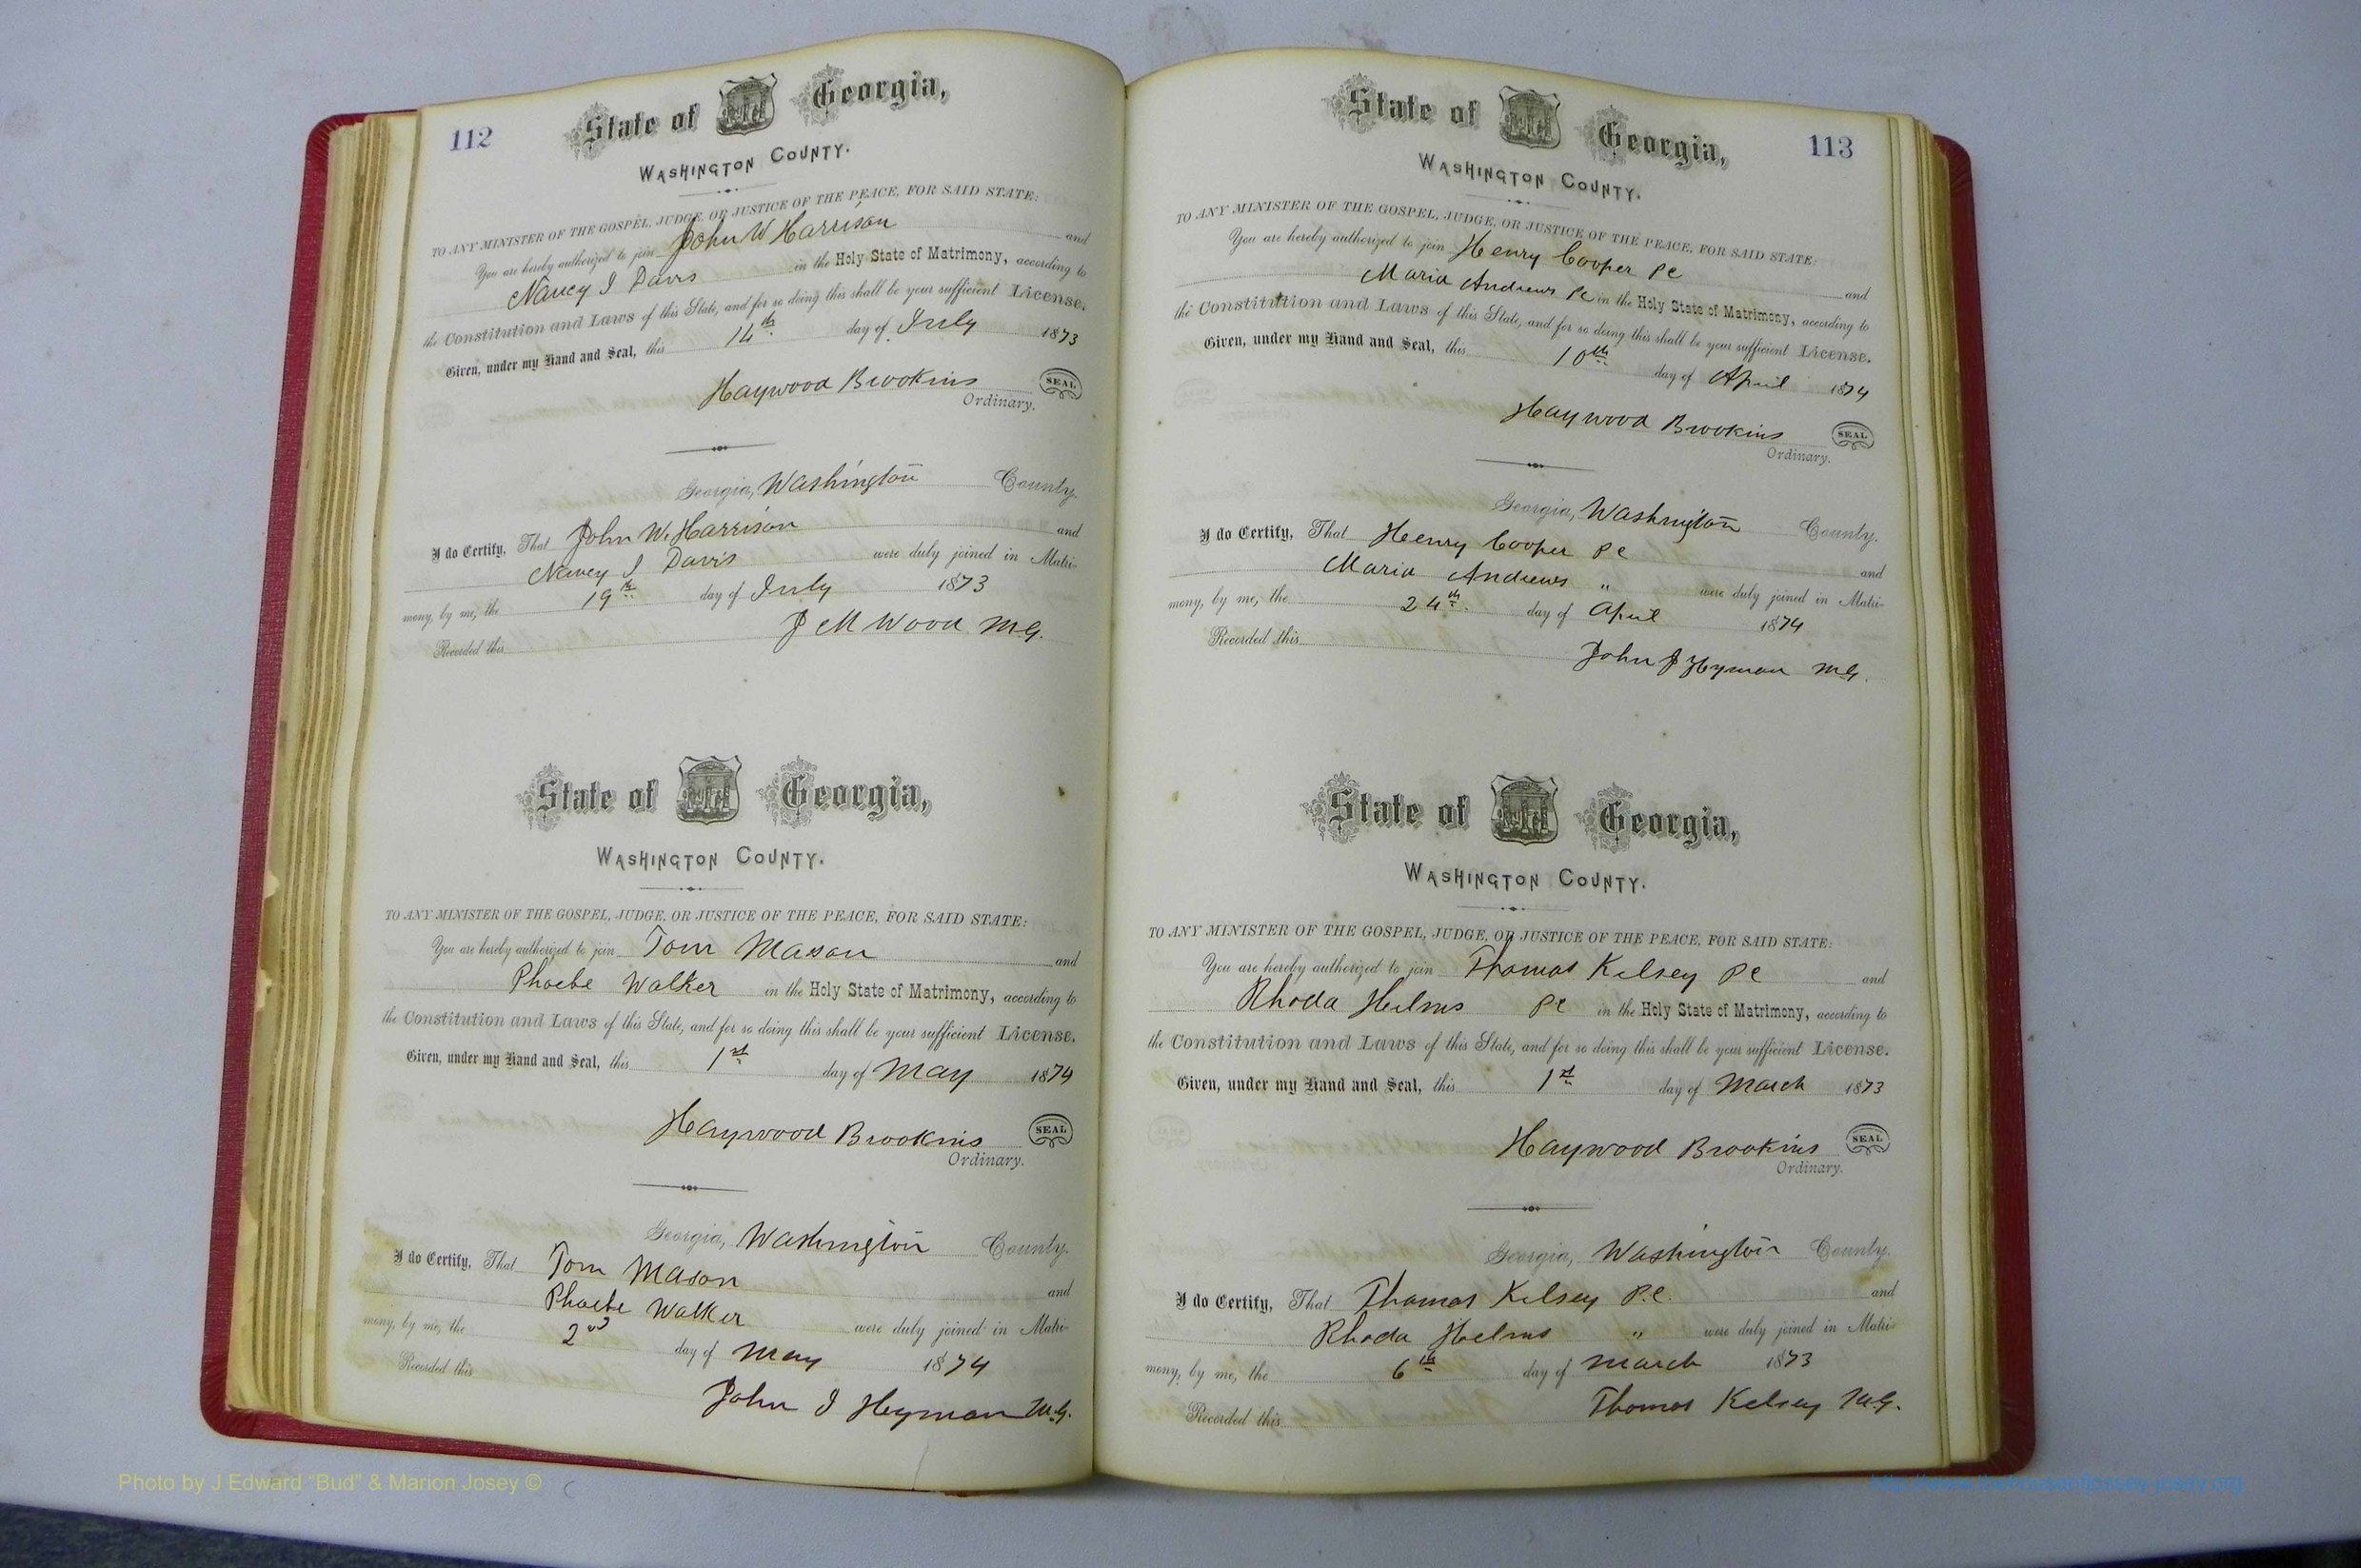 112
State of Georgia,
WASHINGTON COUNTY.
TO ANY MINISTER OF THE GOSPEL, JUDGE, OR JUSTICE OF THE PEACE, FOR SAID STATE:
You are hereby authorized to join John W Harrison and
Nancy I Davis in the Holy State of Matrimony, according to
the Constitution and Laws of this State, and for so doing this shall be your sufficient License.
Given, under my Hand and Seal, this 14th day of July 1873
Haywood Brookins SEAL
Ordinary.
Georgia, Washington County.
I do Certify, That John W. Harrison and
Nancy I Davis were duly joined in Matri-
mony, by me, the 19th day of July 1873
Recorded this J M Wood M.G.
State of Georgia,
WASHINGTON COUNTY.
TO ANY MINISTER OF THE GOSPEL, JUDGE, OR JUSTICE OF THE PEACE, FOR SAID STATE:
You are hereby authorized to join Tom Mason and
Phoebe Walker in the Holy State of Matrimony, according to
the Constitution and Laws of this State, and for so doing this shall be your sufficient License.
Given, under my Hand and Seal, this 1st day of May 1874
Haywood Brookins SEAL
Ordinary.
Georgia, Washington County.
I do Certify, That Tom Mason and
Phoebe Walker were duly joined in Matri-
mony, by me, the 2nd day of May 1874
Recorded this John J Hyman M.G.
113
State of Georgia,
WASHINGTON COUNTY.
TO ANY MINISTER OF THE GOSPEL, JUDGE, OR JUSTICE OF THE PEACE, FOR SAID STATE:
You are hereby authorized to join Henry Cooper PC and
Maria Andrews PC in the Holy State of Matrimony, according to
the Constitution and Laws of this State, and for so doing this shall be your sufficient License.
Given, under my Hand and Seal, this 10th day of April 1874
Haywood Brookins SEAL
Ordinary.
Georgia, Washington County.
I do Certify, That Henry Cooper PC and
Maria Andrews " were duly joined in Matri-
mony, by me, the 24th day of April 1874
Recorded this John J Hyman M.G.
State of Georgia,
WASHINGTON COUNTY.
TO ANY MINISTER OF THE GOSPEL, JUDGE, OR JUSTICE OF THE PEACE, FOR SAID STATE:
You are hereby authorized to join Thomas Kelsey PC and
Rhoda Helms PC in the Holy State of Matrimony, according to
the Constitution and Laws of this State, and for so doing this shall be your sufficient License.
Given, under my Hand and Seal, this 1st day of March 1873
Haywood Brookins SEAL
Ordinary.
Georgia, Washington County.
I do Certify, That Thomas Kelsey P.C. and
Rhoda Helms " were duly joined in Matri-
mony, by me, the 6th day of March 1873
Recorded this Thomas Kelsey M.G.
Photo by J Edward "Bud" & Marion Josey ©